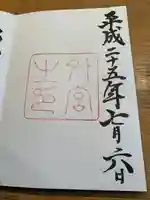 平成二十五年七月六日
外宮
之印